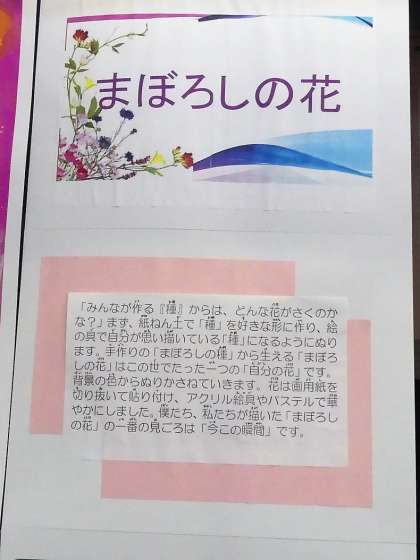 まぼろしの花
「みんなが作る『種』からは、どんな花がさくのか
な？」まず、紙ねん土で「種」を好きな形に作り、絵
の具で自分が思い描いている「種」になるようにぬり
ます。手作りの「まぼろしの種」から生える「まぼろ
しの花」はこの世でたった一つの「自分の花」です。
背景の色からぬりかさねていきます。花は画用紙を
切り抜いて貼り付け、アクリル絵具やパステルで華
やかにしました。僕たち、私たちが描いた「まぼろし
の花」の一番の見ごろは「今この瞬間」です。